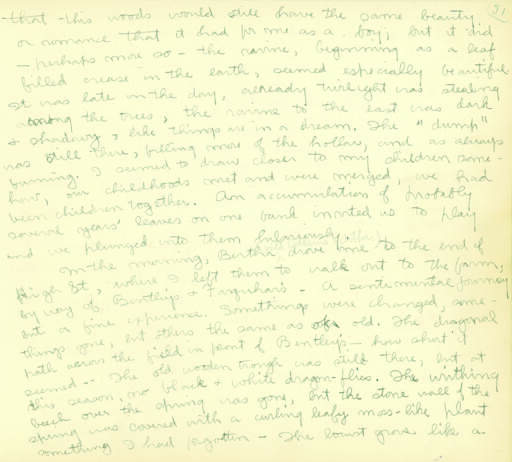 31
-that this woods would still have the same beauty
or romance that it had for me as a boy; but it did
- perhaps more so - the ravine, beginning as a leaf
filled crease in the earth, seemed especially beautiful.
It was late in the day, already twilight was stealing
among the trees, the ravine to the east was dark
& shadowy, like things are in a dream. The "dump"
was still there, filling more of the hollow, and as always
burning. I seemed to draw closer to my children some-
how, our childhoods met and were merged, we had
been children together. An accumulation of probably
several years' leaves on one bank invited us to play
and we plunged into them hilariously.
In the morning, Bertha drove me to the end of
High St, where I left them to walk out to the farm,
by way of Bentleys & Farquhars - A sentimental journey
but a fine experience. Some things were changed, some
things gone, but others the same as of old. The diagonal
path across the field in front of Bentleys - how short it
seemed -- The old wooden trough was still there, but at
this season, no black & white dragon-flies. The writhing
beech over the spring was gone, but the stone wall of the
spring was covered with a curling leafy moss-like plant
something I had forgotten - The locust grove like a